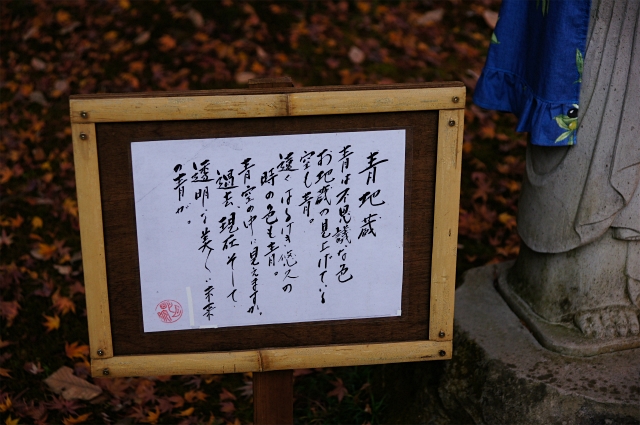 青地蔵
青は不思議な色
お地蔵の見上げている
空も青。
遠くはるけき悠久の
時の色も青。
青空の中に見えますか。
過去、現在そして
透明な美しい未来
の青が。